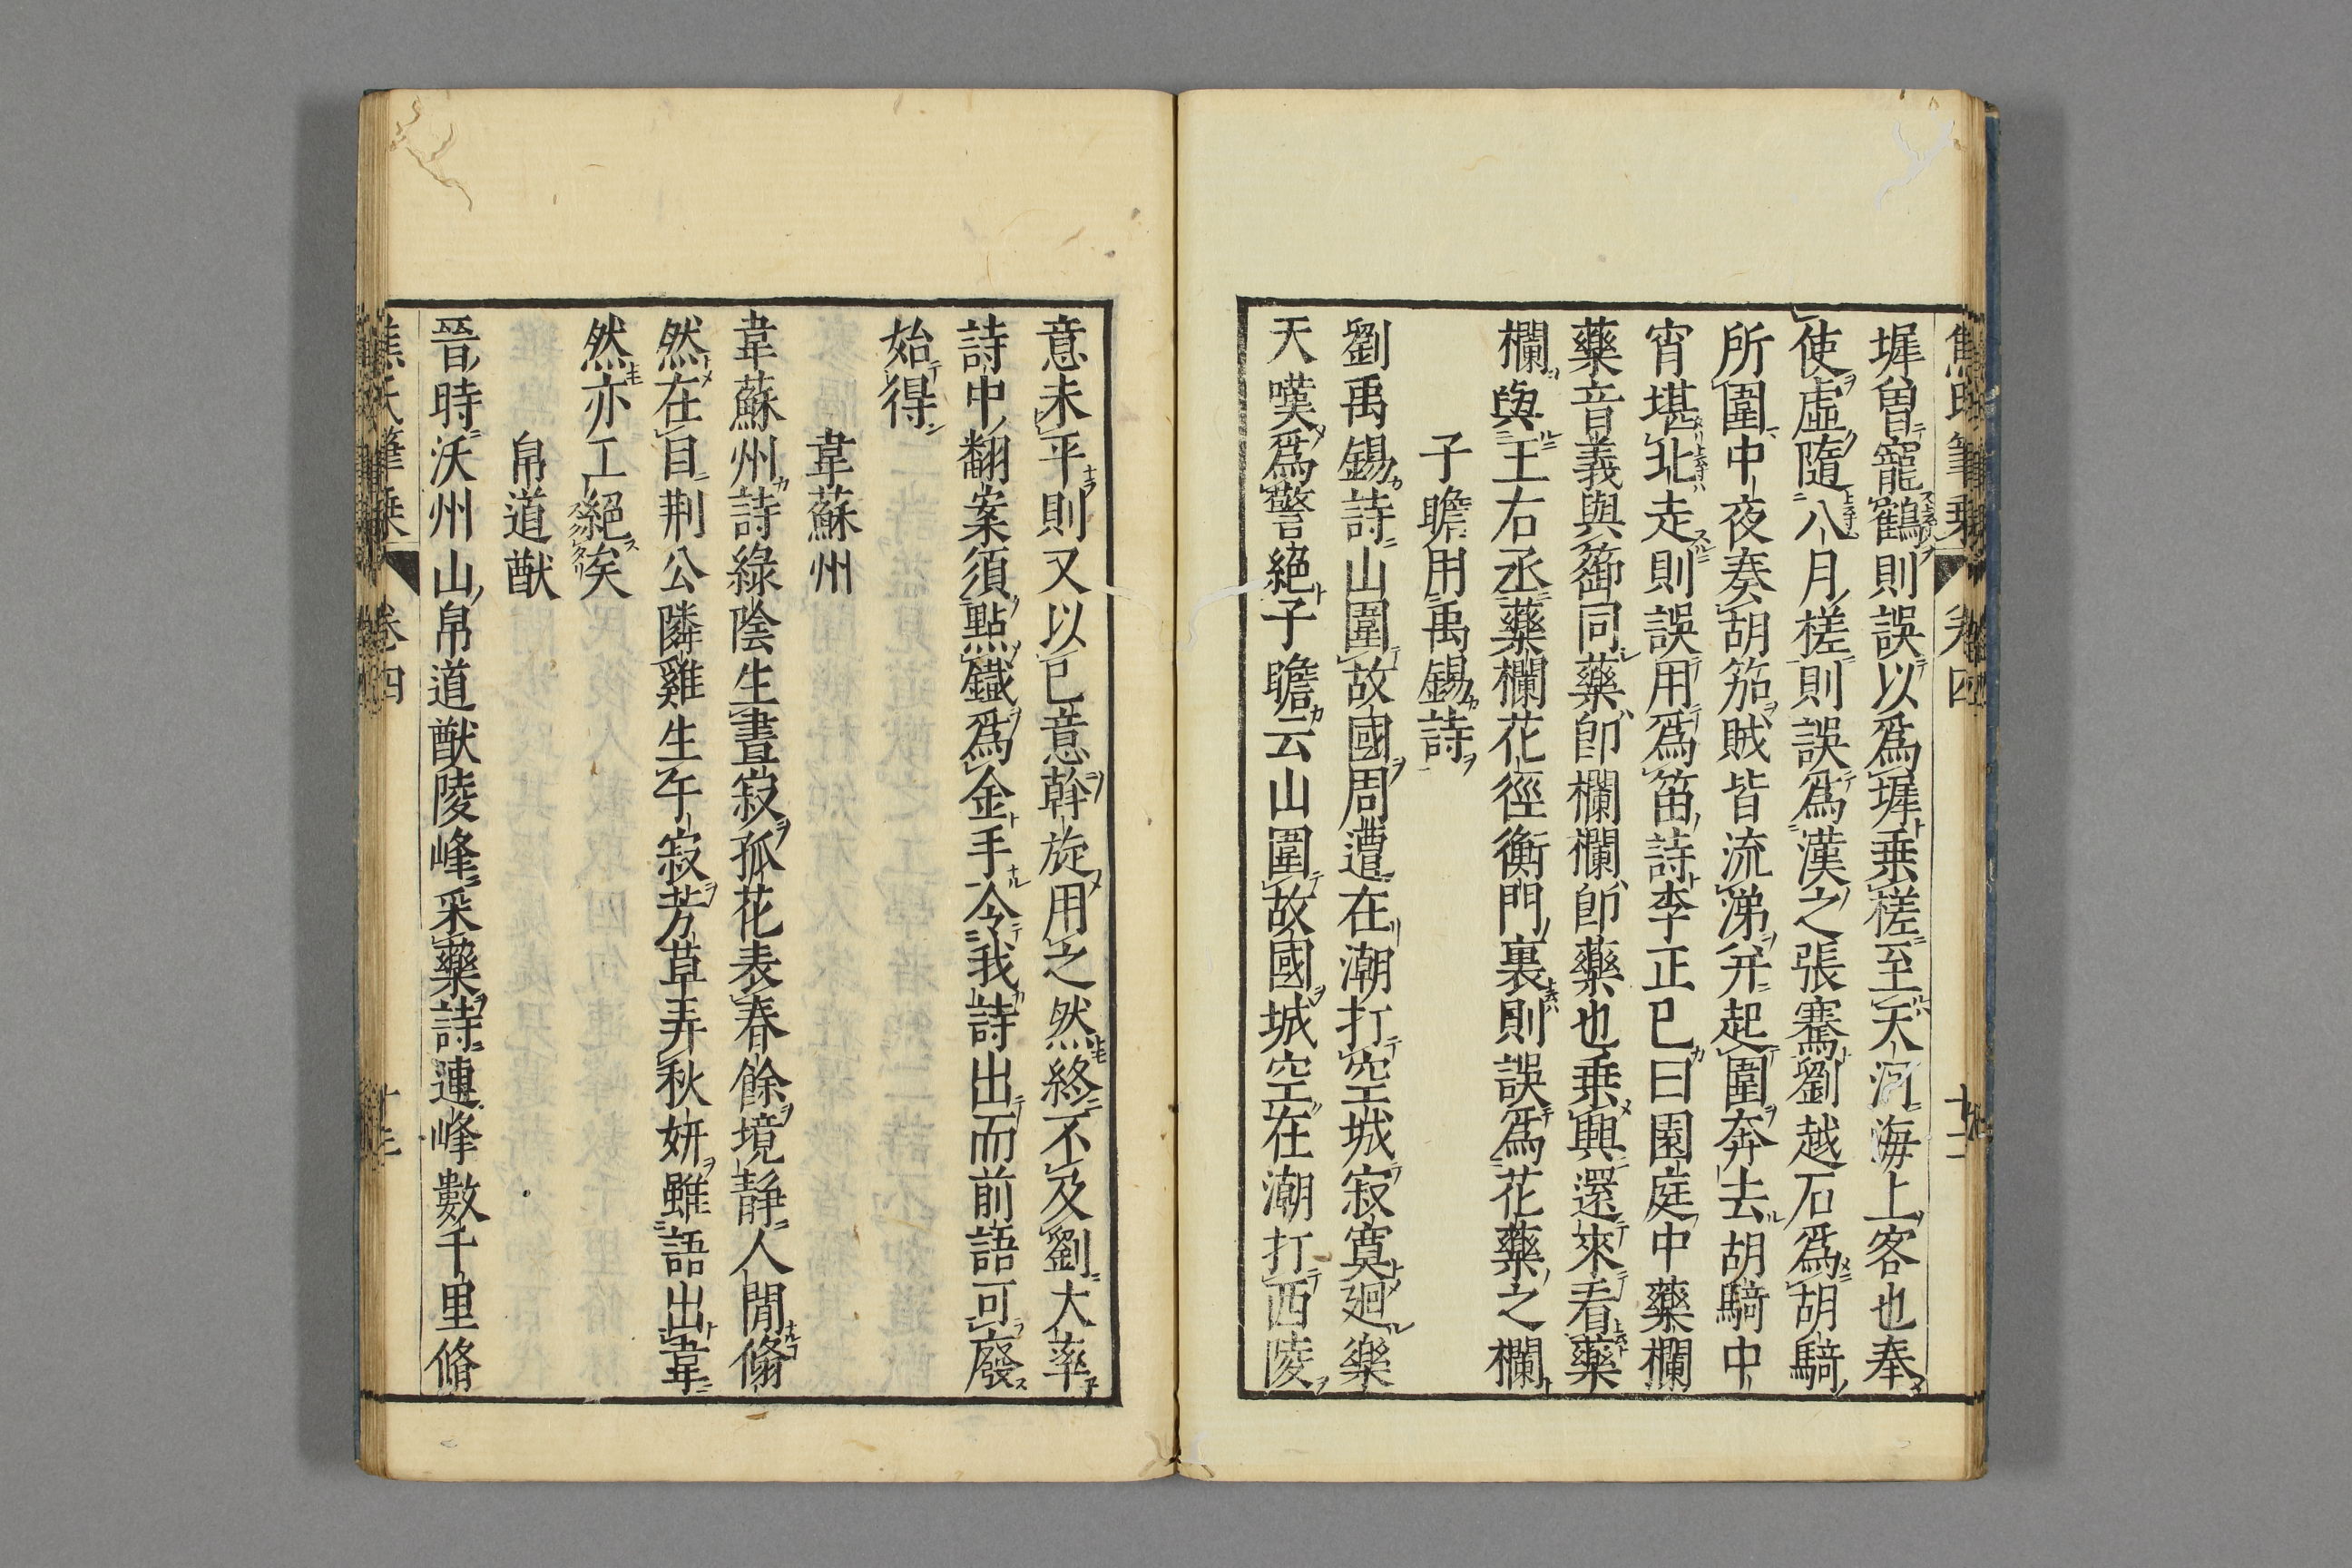 焦氏筆乗 卷四
墀曽寵鶴則誤以爲墀乗槎至天河海上客也奉
使虛隨八月槎則誤爲漢之張騫劉越石爲胡騎
所圍中夜奏胡笳賊皆流涕弃起圍奔去胡騎中
宵堪北走則誤用爲笛詩李正巳曰園庭中藥欄
藥音義與籞同藥卽欄欄卽藥也乗興還來看藥
欄與王右丞藥欄花徑衡門裏則誤爲花藥之欄
子瞻用禹錫詩
劉禹錫詩山圍故國周遭在潮打空城寂寞廻樂
天嘆爲警絕子瞻云山圍故國城空在潮打西陵
意未平則又以巳意斡旋用之然終不及劉大率
詩中翻案須點鐵爲金手令我詩出而前語可廢
始得
韋蘇州
韋蘇州詩綠陰生晝寂孤花表春餘境靜人閒翛
然在目荆公隣雞生午寂芳草弄秋妍雖語出韋
然亦工絕矣
帛道猷
晉時沃州山帛道猷陵峰采藥詩連峰數千里脩
焦氏筆乗 卷四